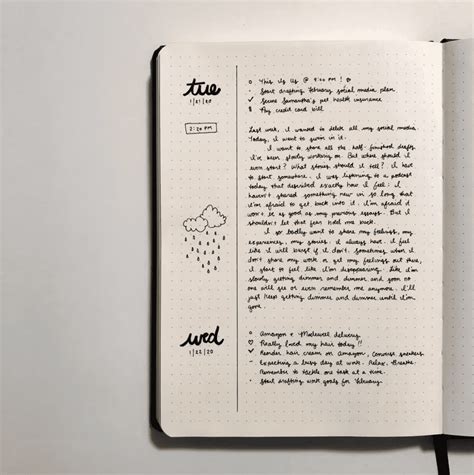 tue
1/21/20
○ This Is Us @ 9:00 PM !
- Start drafting February social media plan
✓ Secure Samantha's pet health insurance
$ Pay credit card bill
2:20 PM
Last week, I wanted to delete all my social media.
Today, I want to swim in it.
I want to share all the half-finished drafts
I've been slowly working on. But where should I
even start? What stories should I tell? I have
to start somewhere. I was listening to a podcast
today that described exactly how I feel: I
haven't shared something new in so long that
I'm afraid to get back into it. I'm afraid it
won't be as good as my previous essays. But I
shouldn't let that fear hold me back.
I so badly want to share my feelings, my
experiences, my stories. I always have. I feel
like I will burst if I don't. Sometimes when I
don't share my work or get my feelings out there,
I start to feel like I'm disappearing. Like I'm
slowly getting dimmer and dimmer and soon no
one will see or even remember me anymore. I'll
just keep getting dimmer and dimmer until I'm
gone.
wed
1/22/20
○ Amazon + Madewell delivery
♡ Really loved my hair today!!
✓ Reorder hair cream on Amazon, Converse sneakers
- Expecting a busy day at work. Relax. Breathe.
Remember to tackle one task at a time.
- Start drafting work goals for February